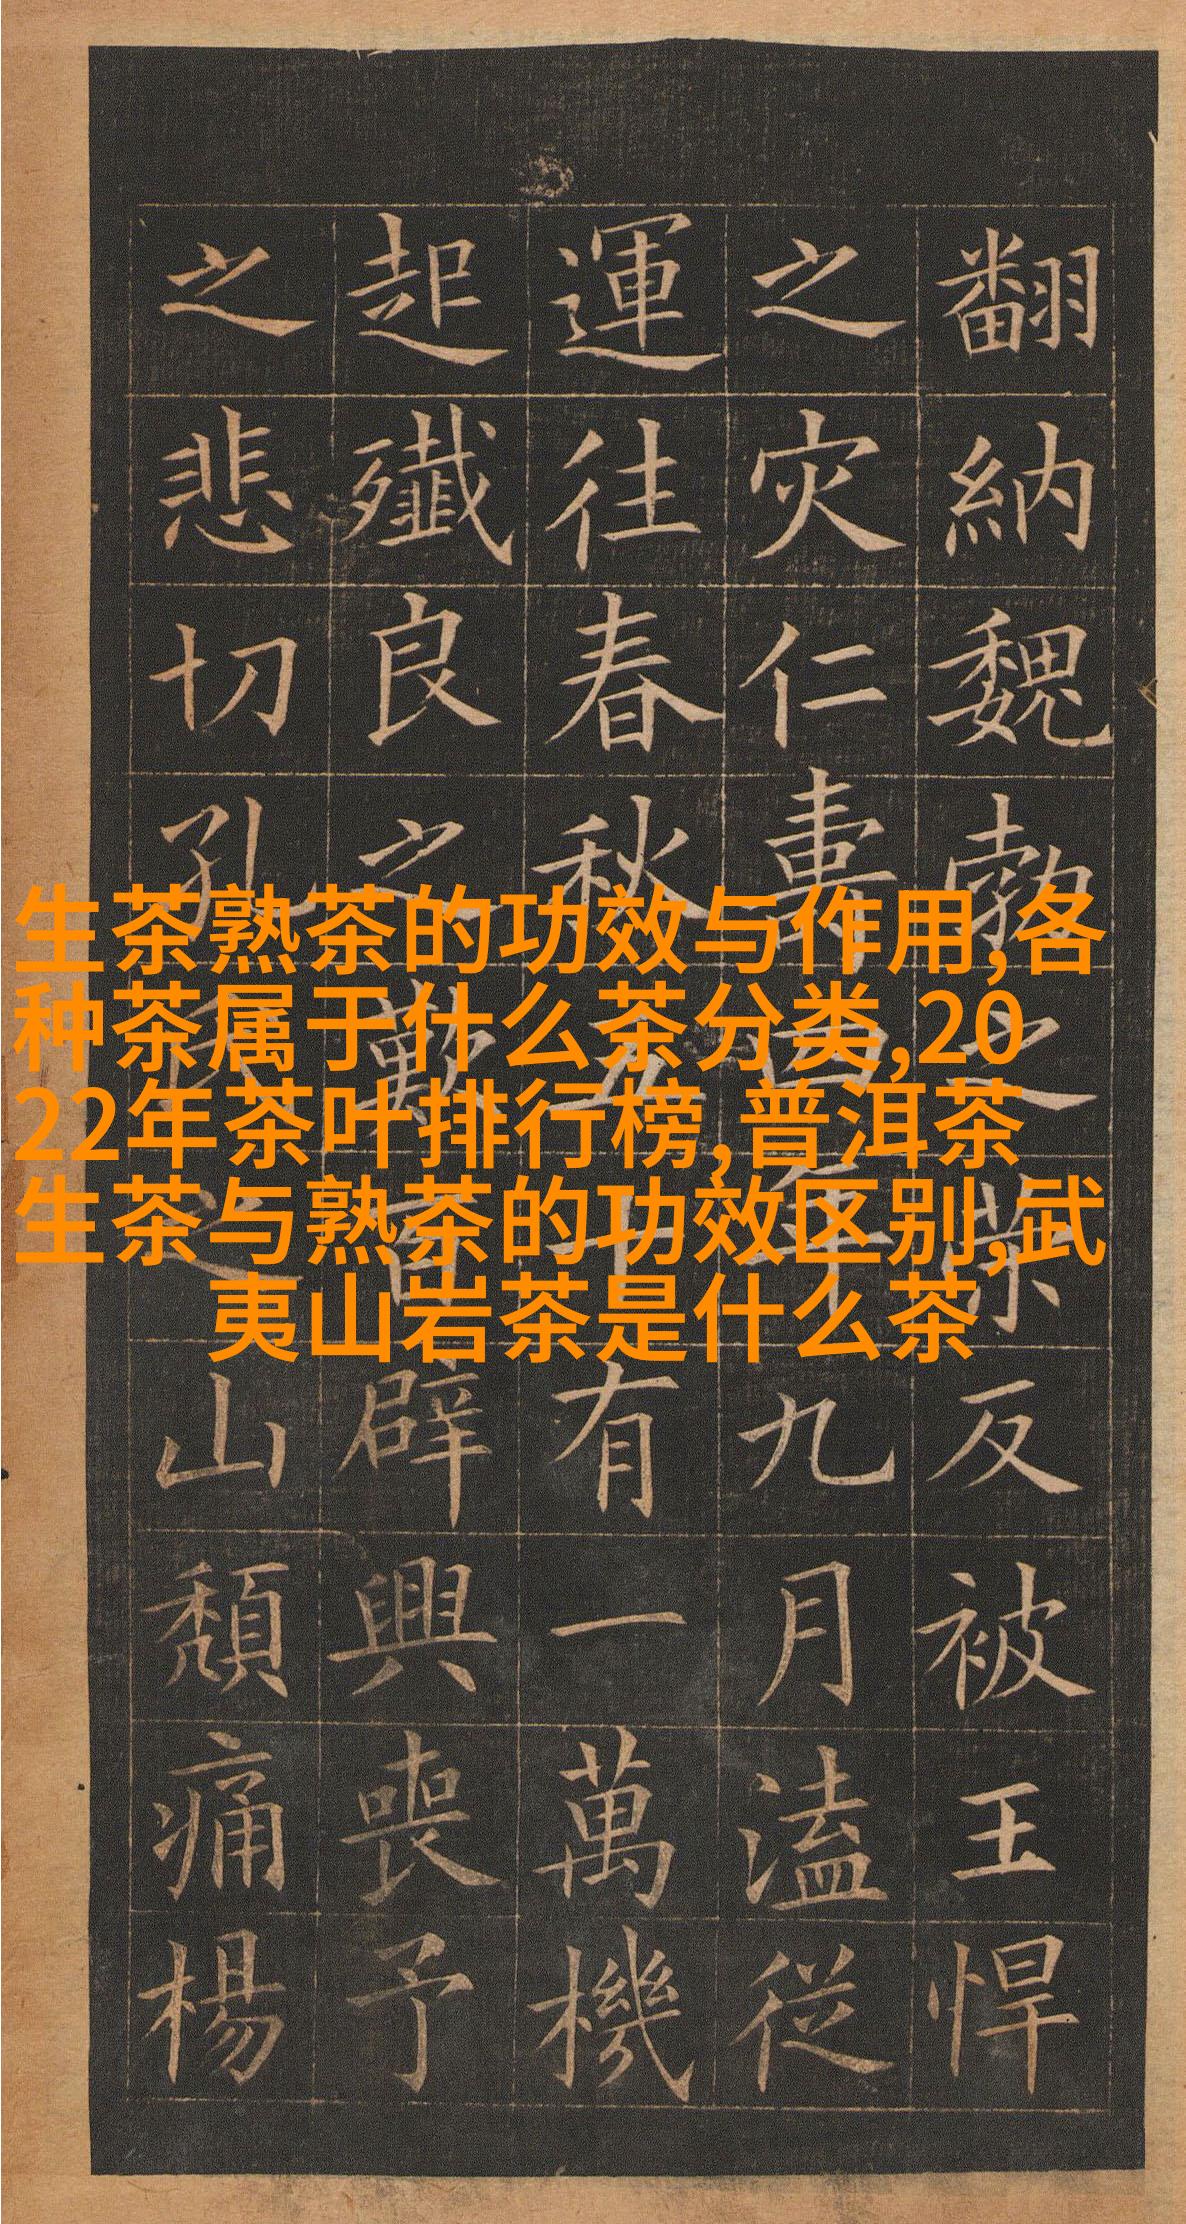 翻納魏勃之反被王悍
之灾仁壽四年九月溘從
運往春秋五十有一萬機
起殲良之歎百辟興喪予
之悲切孔之山頹痛楊
生茶熟茶的功效与作用,各
种茶属于什么茶分类,20
22年茶叶排行榜,普洱茶
生茶与熟茶的功效区别,武
夷山岩茶是什么茶